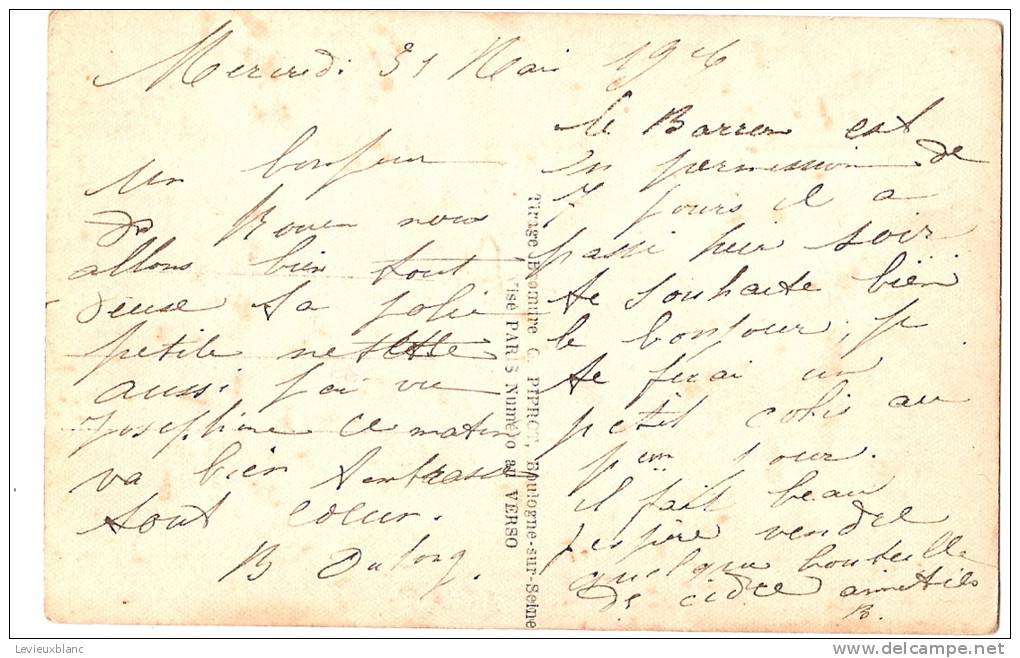 Mercredi 31 Mai 19
un bonjour
de Rouen nous
allons bien tout
deuse ta jolie
petite
aussi j'ai vu
Josephine ce matin
va bien
tout coeur.
B
le Barren est
en permission de
7 jours il a
passé hier soir
te souhaite bien
le bonjour, je
te ferai un
petit coli au
jour.
il fait beau
j'espère vendre
quelque bouteille
de cidre amitiés
B.
Tirage Bromure C. PIPROT, Boulogne-sur-Seine
Visé PARIS Numéro au VERSO
Levieuxblanc
www.delcampe.net